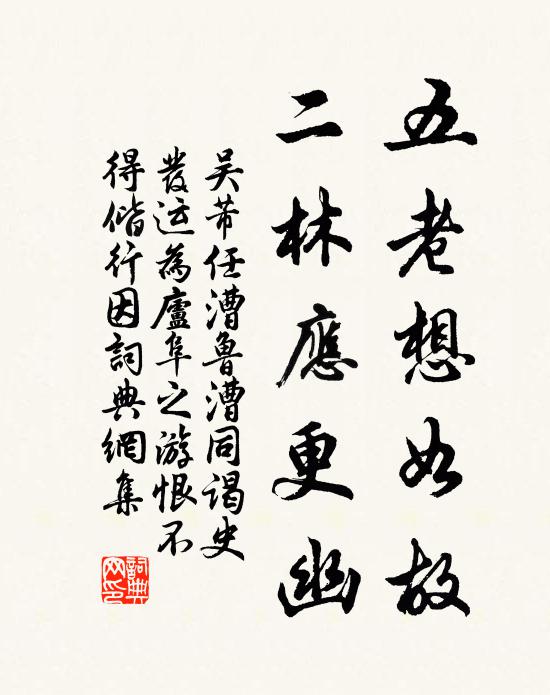 五老想如故
二林應更幽
吴芾任漕魯漕同谒史
發运為廬阜之游恨不
得偕行因詞典網集
詞典网印